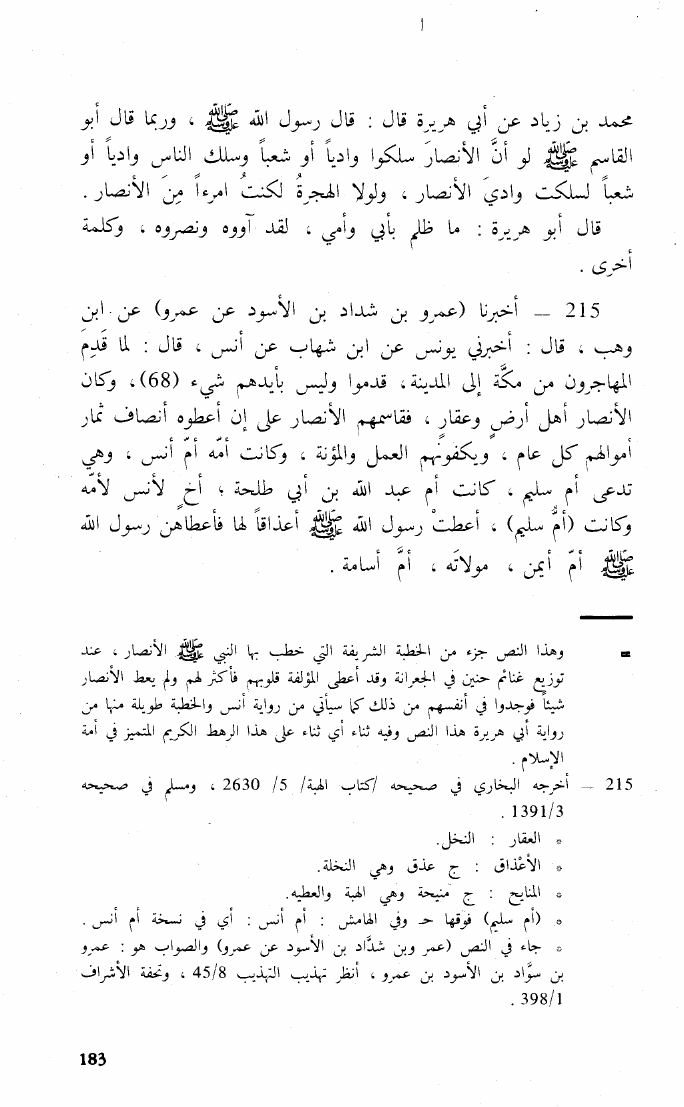 محمد بن زياد عن أبي هريرة قال : قال رسول الله ﷺ ، وربما قال أبو
القاسم ﷺ لو أنَّ الأنصارَ سلكوا وادياً أو شعباً وسلك الناس وادياً أو
شعباً لسلكت واديَ الأنصار ، ولولا الهجرةُ لكنتُ امرءاً مِنَ الأنصار .
قال أبو هريرة : ما ظلم بأبي وأمي ، لقد آووه ونصروه ، وكلمة
أخرى .
215 – أخبرنا (عمرو بن شداد بن الأسود عن عمرو) عن ابن
وهب ، قال : أخبرني يونس عن ابن شهاب عن أنس ، قال : لما قَدِمَ
المهاجرون من مكَّة إلى المدينة ، قدموا وليس بأيدهم شيء (68) ، وكان
الأنصار أهل أرضٍ وعقارٍ ، فقاسمهم الأنصار على إن أعطوه أنصاف ثمار
أموالهم كل عام ، ويكفونهم العمل والمؤنة ، وكانت أمّه أمّ أنس ، وهي
تدعى أم سليم ، كانت أم عبد الله بن أبي طلحة ؛ أخٍ لأنس لأمّه
وكانت (أمُّ سليم) ، أعطتْ رسول الله ﷺ أعذاقاً لها فأعطاهن رسول الله
ﷺ أمّ أيمن ، مولاتَه ، أمَّ أسامة .
= وهذا النص جزء من الخطبة الشريفة التي خطب بها النبي ﷺ الأنصار ، عند
توزيع غنائم حنين في الجعرانة وقد أعطى المؤلفة قلوبهم فأكثر لهم ولم يعط الأنصار
شيئاً فوجدوا في أنفسهم من ذلك كما سيأتي من رواية أنس والخطبة طويلة منها من
رواية أبي هريرة هذا النص وفيه ثناء أي ثناء على هذا الرهط الكريم المتميز في أمة
الإسلام .
215 – أخرجه البخاري في صحيحه /كتاب الهبة/ 5/ 2630 ، ومسلم في صحيحه
1391/3 .
* العقار : النخل.
* الأعْذاق : ج عذق وهي النخلة.
* المنايح : ج منيحة وهي الهبة والعطيه.
* (أم سليم) فوقها حـ وفي الهامش : أم أنس : أي في نسخة أم أنس .
* جاء في النص (عمر وبن شدَّاد بن الأسود عن عمرو) والصواب هو : عمرو
بن سوَّاد بن الأسود بن عمرو ، أنظر تهذيب التهذيب 45/8 ، وتحفة الأشراف
398/1 .
183